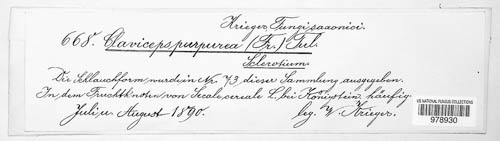 Krieger, Fungi saxonici.
668. Claviceps purpurea (Fr.) Tul.
Sclerotium.
Die Schlauchform wurde in Nr. 73 dieser Sammlung ausgegeben.
In dem Fruchtknoten von Secale cereale L. bei Königstein häufig.
Juli u. August 1890. leg. W. Krieger.
US NATIONAL FUNGUS COLLECTIONS
978930